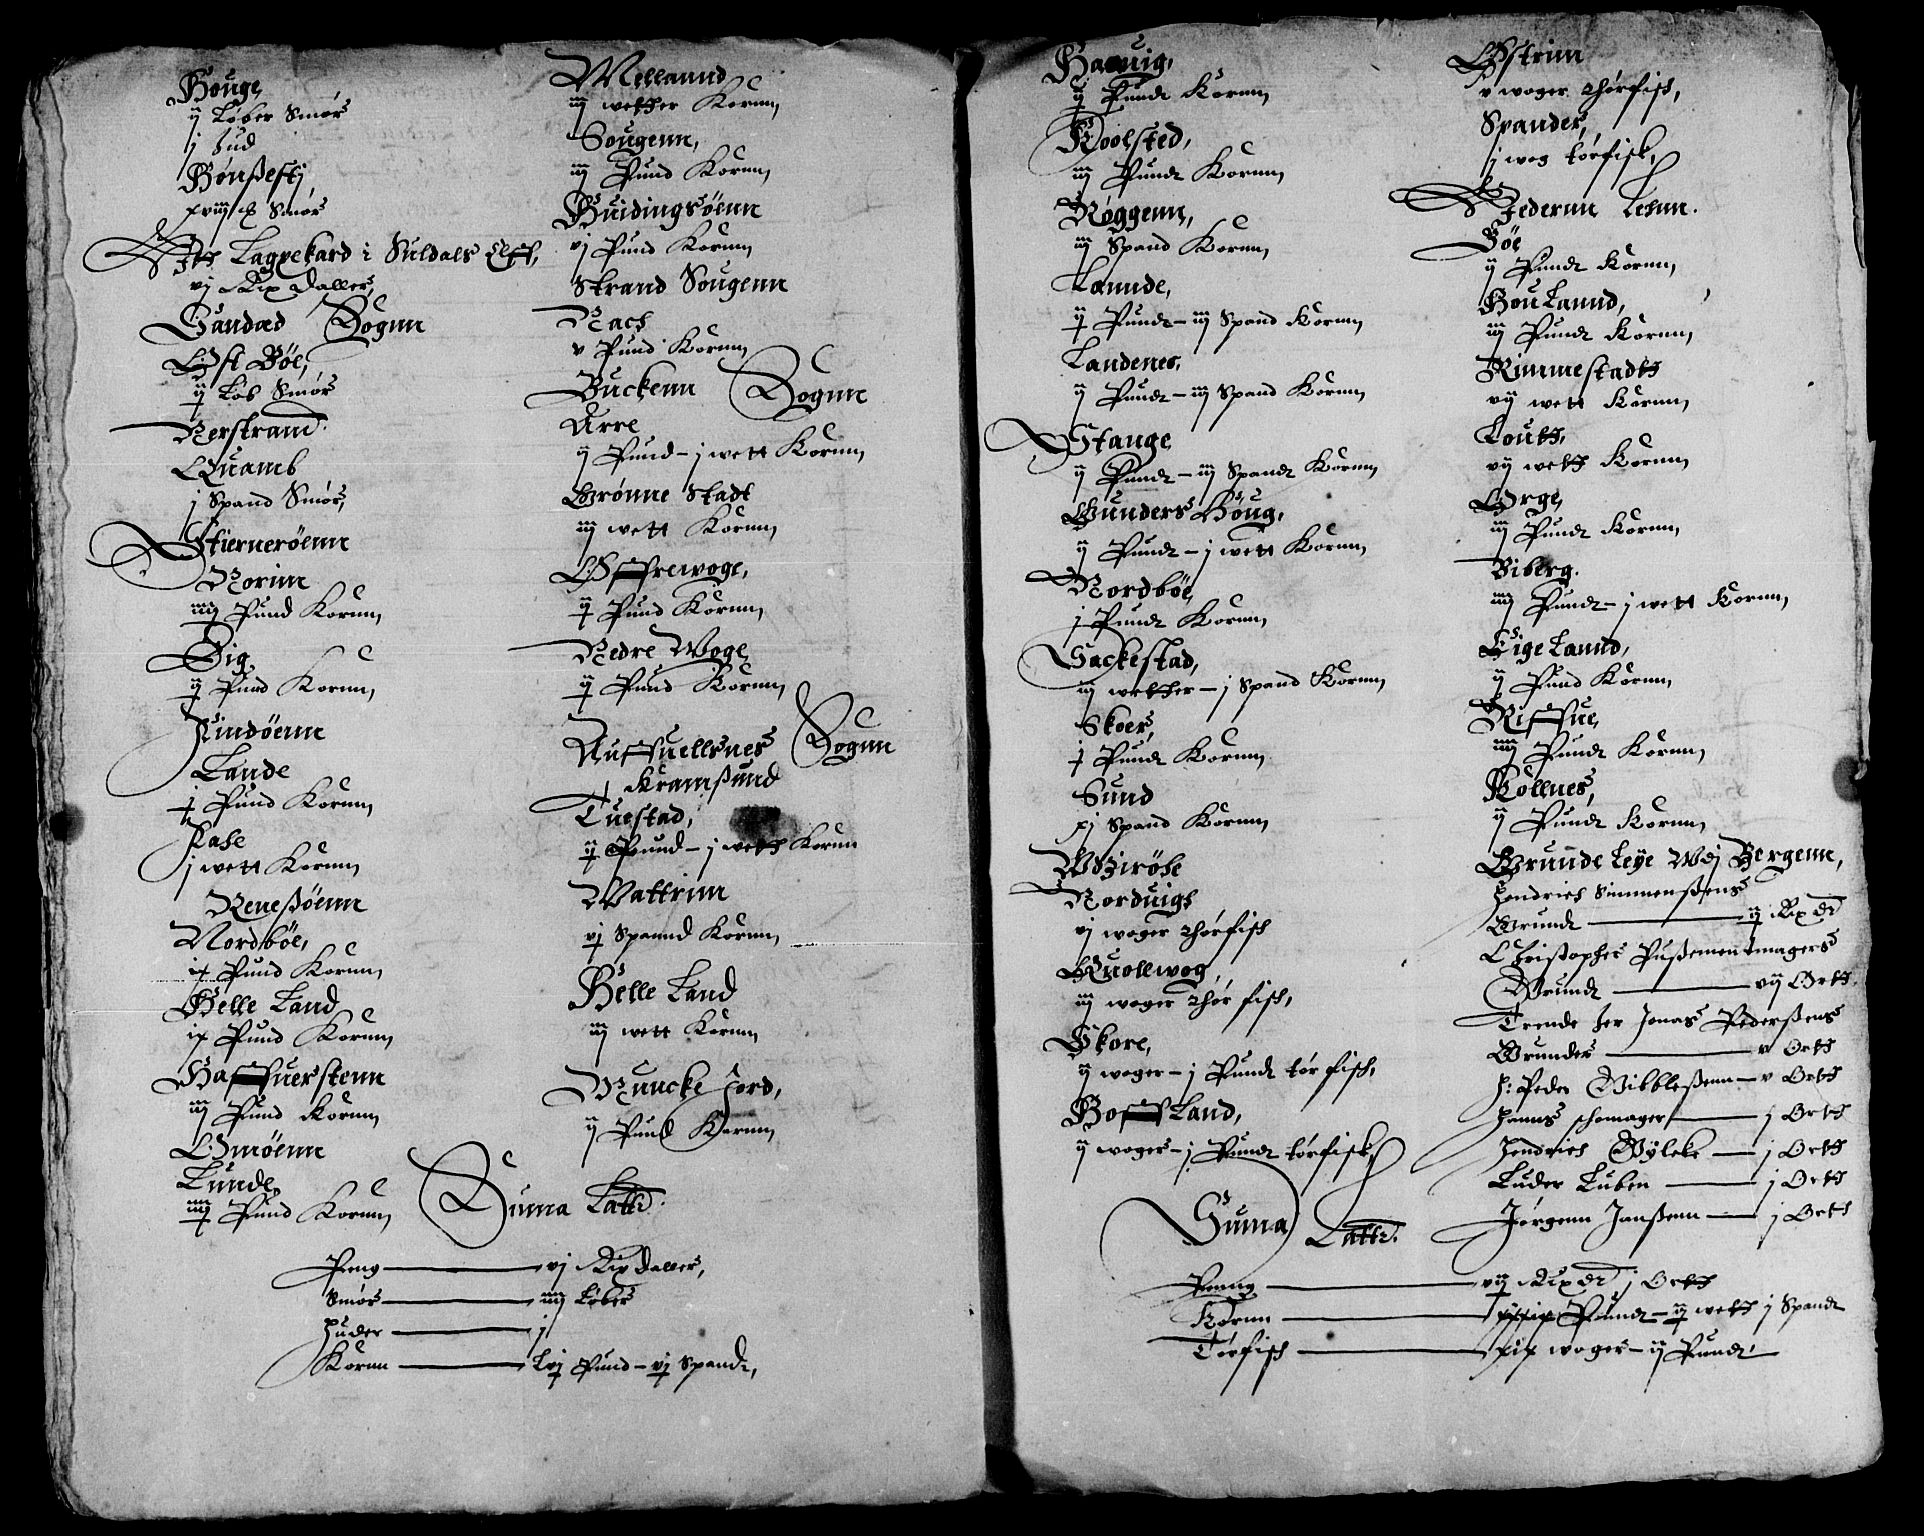 Houge
ij Løber Smør
j hud
Hønßestj,
xviij # Smør
Itt Laxekard i Suldals Elff,
vj Rix Daller,
Sandæd Sognn
Øst Bøe,
ij Løb Smør
Nerstrand
Quamb
j Spand Smør,
Stiernerøenn
Norim
iiij Pund Kornn,
Dig
ij Pund Kornn,
Findöenn
Lande
j Pund Kornn,
Hase
j wett Kornn,
Reneßöenn
Nordbøe,
ix Pund Kornn,
Helle Land
ix Pund Kornn,
Haffuerstenn
iij Pund Kornn,
Omöenn
Lunde,
iiij Pund Kornn,
Mellannd
iij wetter Kornn,
Sougenn,
iij Pund Kornn,
Huidingsöenn
vj Pund Kornn,
Strand Sougenn
Nach
v Pund Kornn,
Buckenn Sognn
Arre
ij Pund – j wett Kornn,
Grönne Stadt
iij wett Kornn,
Øffrewoge,
ij Pund Kornn,
Nedre Woge,
ij Pund Kornn,
Auffuellsnes Sognn
Kramßund
Tuestad,
ij Pund – j wett Kornn
Wattrim
vj Spannd Kornn,
Helle Land
iij wett Kornn,
Muncke Jord,
ij Pund Kornn,
Suma Latt.
Peng — vj Rix Daller,
Smør — iiij Løber
Huder — j
Kornn — Lvj Pund – vj Spand,
Haauig,
ij Pund Kornn,
Roolsted,
iij Pund Kornn,
Røggenn,
iij Spand Kornn,
Lannde,
ij Pund – iij Spand Kornn,
Landenes,
ij Pund – iij Spand Kornn,
Stange
ij Pund – iij Spand Kornn,
Gunders Höug,
ij Pund – j wett Kornn,
Nordbøe,
j Pund Kornn,
Sackestad,
iij wetter – j Spand Kornn,
Skoer,
j Pund Kornn,
Sund
xj Spand Kornn,
Wdziröse
Norduigh
vj woger thørfisch
Quollwog,
iij woger thør fisch,
Skore,
ij woger – j Pund tør fisch,
Hoffland,
ij woger – j Pund tørfisk,
Suma Latt.
Penng — vij Rix Dr j Ortt
Kornn — Pund – ij wett j Spand
Tørfisch — xix woger – ij Pund
Østrim
v woger thørfisch,
Spander,
j wog tørfisk,
Jederenn Lehnn.
Bøe
ij Pund Kornn,
Hou Lannd,
iij Pund Kornn,
Rimmestadtt
vij wett Kornn,
Loutt,
vij wett Kornn,
Orge,
iij Pund Kornn,
Biberg.
iiij Pund – j wett Kornn,
Eige Lannd,
ij Pund Kornn,
Risffue,
iiij Pund Kornn,
Kollnes,
ij Pund Kornn,
Grunde Leye Wdj Bergenn,
Hendrich Simmenßens
Grundt — ij Rix Dr
Christopher Pußementmagers
Grundt — vij Ortt.
Trende her Jonas Pederßens
Grunder — v Ortt
H: Peder Nibbleßenn — v Ortt
Hanns schomager — j Ortt
Hendrich Wyleke — j Ortt
Luder Luben — j Ortt
Jørgenn Janßenn — j Ortt